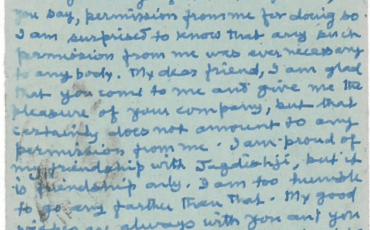 you say, permission from me for doing so
I am surprised to know that any such
permission from me was ever necessary
to any body. My dear friend, I am glad
that you come to me and give me the
pleasure of your company, but that
certainly does not amount to any
permission from me. I am proud of
my friendship with Jagdishji, but it
is friendship only. I am too humble
to go any farther than that. My good
wishes are always with you and you